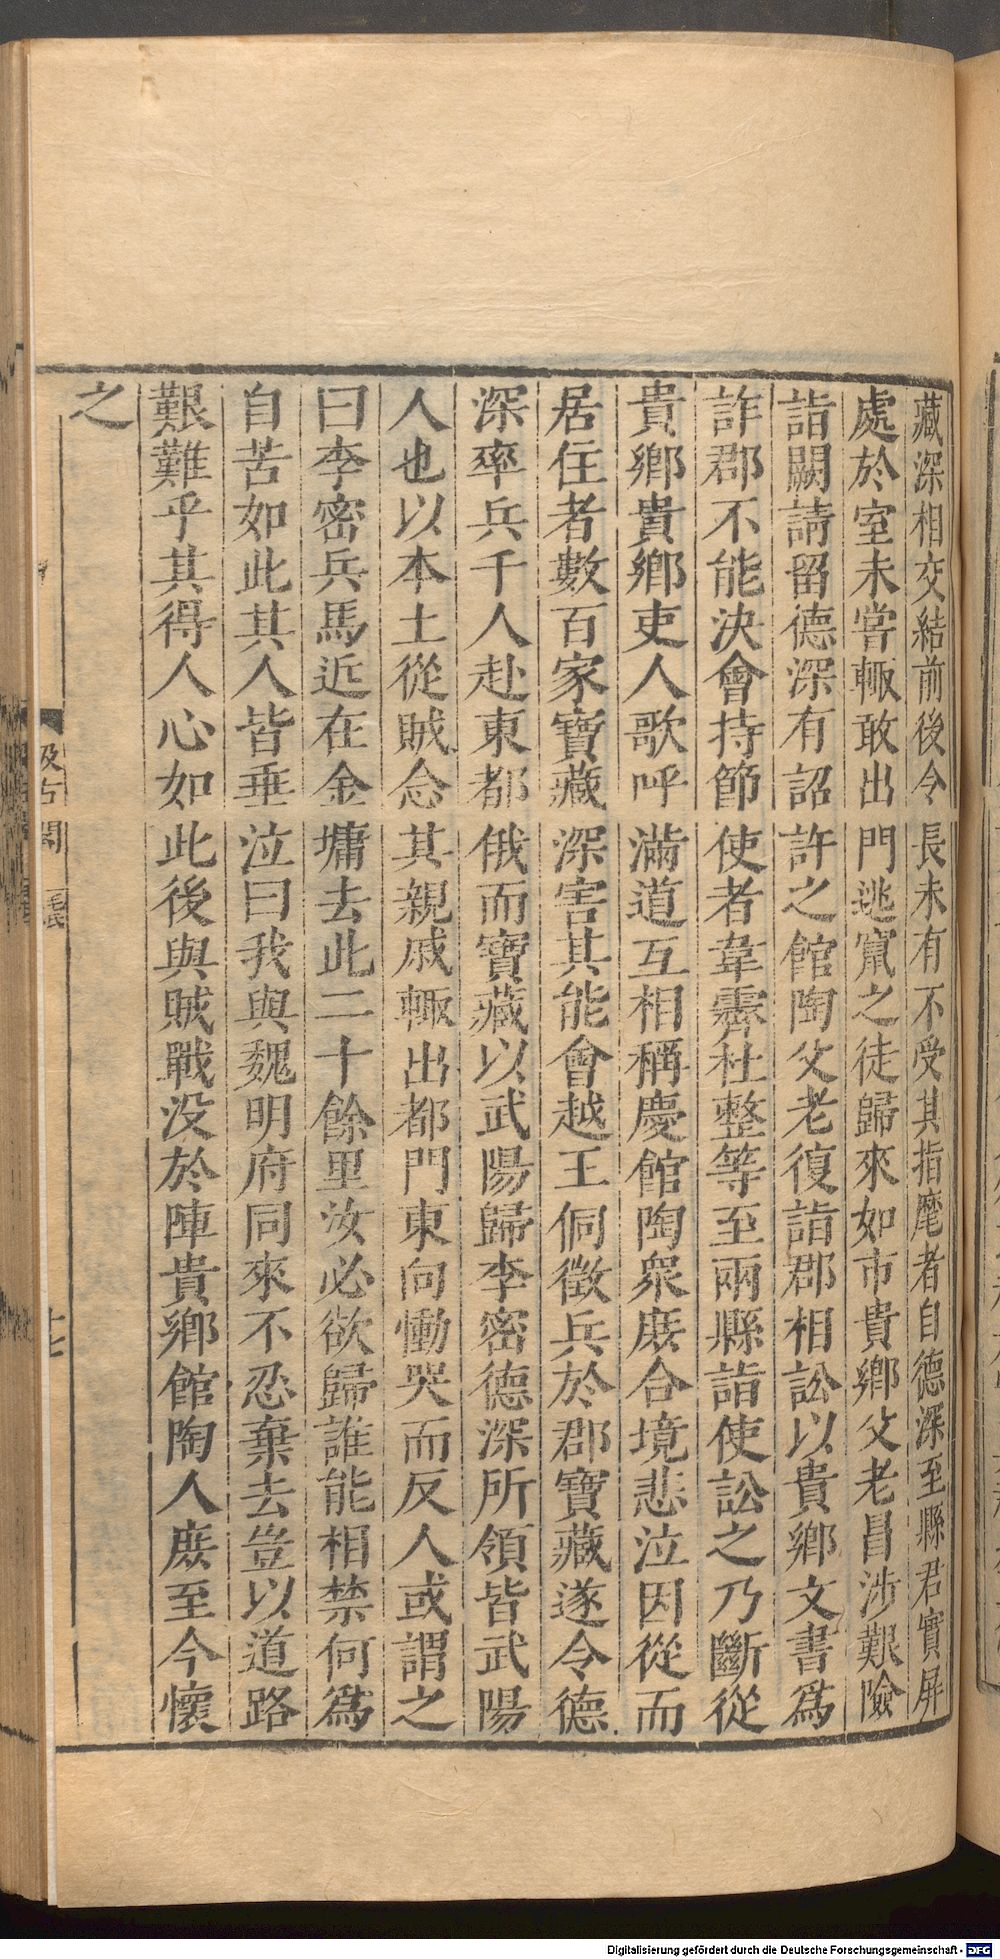 藏深相交結前後令長未有不受其指麾者自德深至縣君實屏
處於室未嘗輙敢出門逃竄之徒歸來如市貴鄉父老冒涉艱險
詣闕請留德深有詔許之館陶父老復詣郡相訟以貴鄉文書爲
詐郡不能決會持節使者韋霽杜整等至兩縣詣使訟之乃斷從
貴鄉貴鄉吏人歌呼滿道互相稱慶館陶衆庶合境悲泣因從而
居住者數百家寶藏深害其能會越王侗徵兵於郡寶藏遂令德
深率兵千人赴東都俄而寶藏以武陽歸李密德深所領皆武陽
人也以本土從賊念其親戚輙出都門東向慟哭而反人或謂之
曰李密兵馬近在金墉去此二十餘里汝必欲歸誰能相禁何爲
自苦如此其人皆垂泣曰我與魏明府同來不忍棄去豈以道路
艱難乎其得人心如此後與賊戰没於陣貴鄉館陶人庶至今懷
之
汲古閣
毛氏
Digitalisierung gefördert durch die Deutsche Forschungsgemeinschaft - DFG